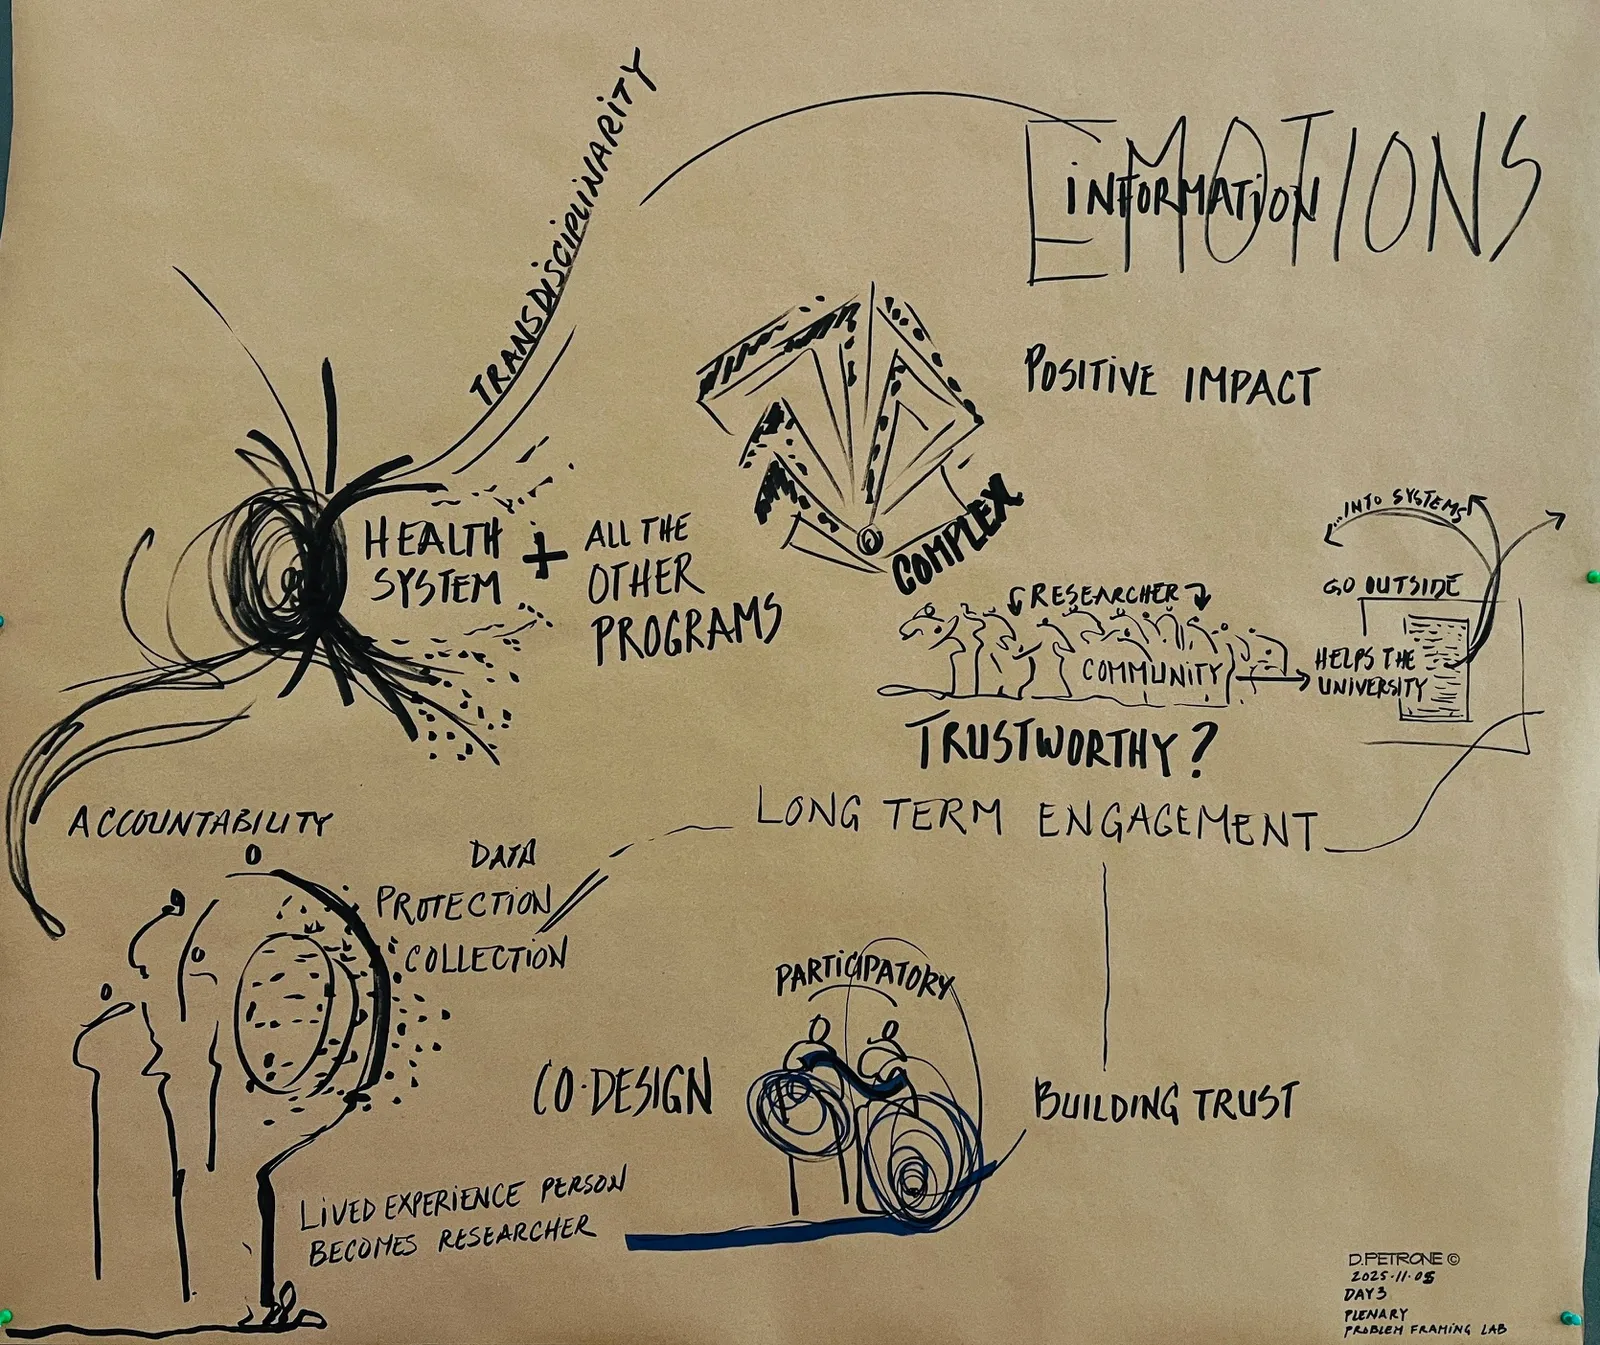 TRANSDISCIPLINARITY
EMOTIONS
INFORMATION
POSITIVE IMPACT
COMPLEX
HEALTH
SYSTEM
+
ALL THE
OTHER
PROGRAMS
...INTO SYSTEMS
GO OUTSIDE
RESEARCHER
COMMUNITY
HELPS THE
UNIVERSITY
TRUSTWORTHY?
LONG TERM ENGAGEMENT
ACCOUNTABILITY
DATA
PROTECTION
COLLECTION
PARTICIPATORY
CO·DESIGN
BUILDING TRUST
LIVED EXPERIENCE PERSON
BECOMES RESEARCHER
D.PETRONE ©
2025·11·05
DAY 3
PLENARY
PROBLEM FRAMING LAB